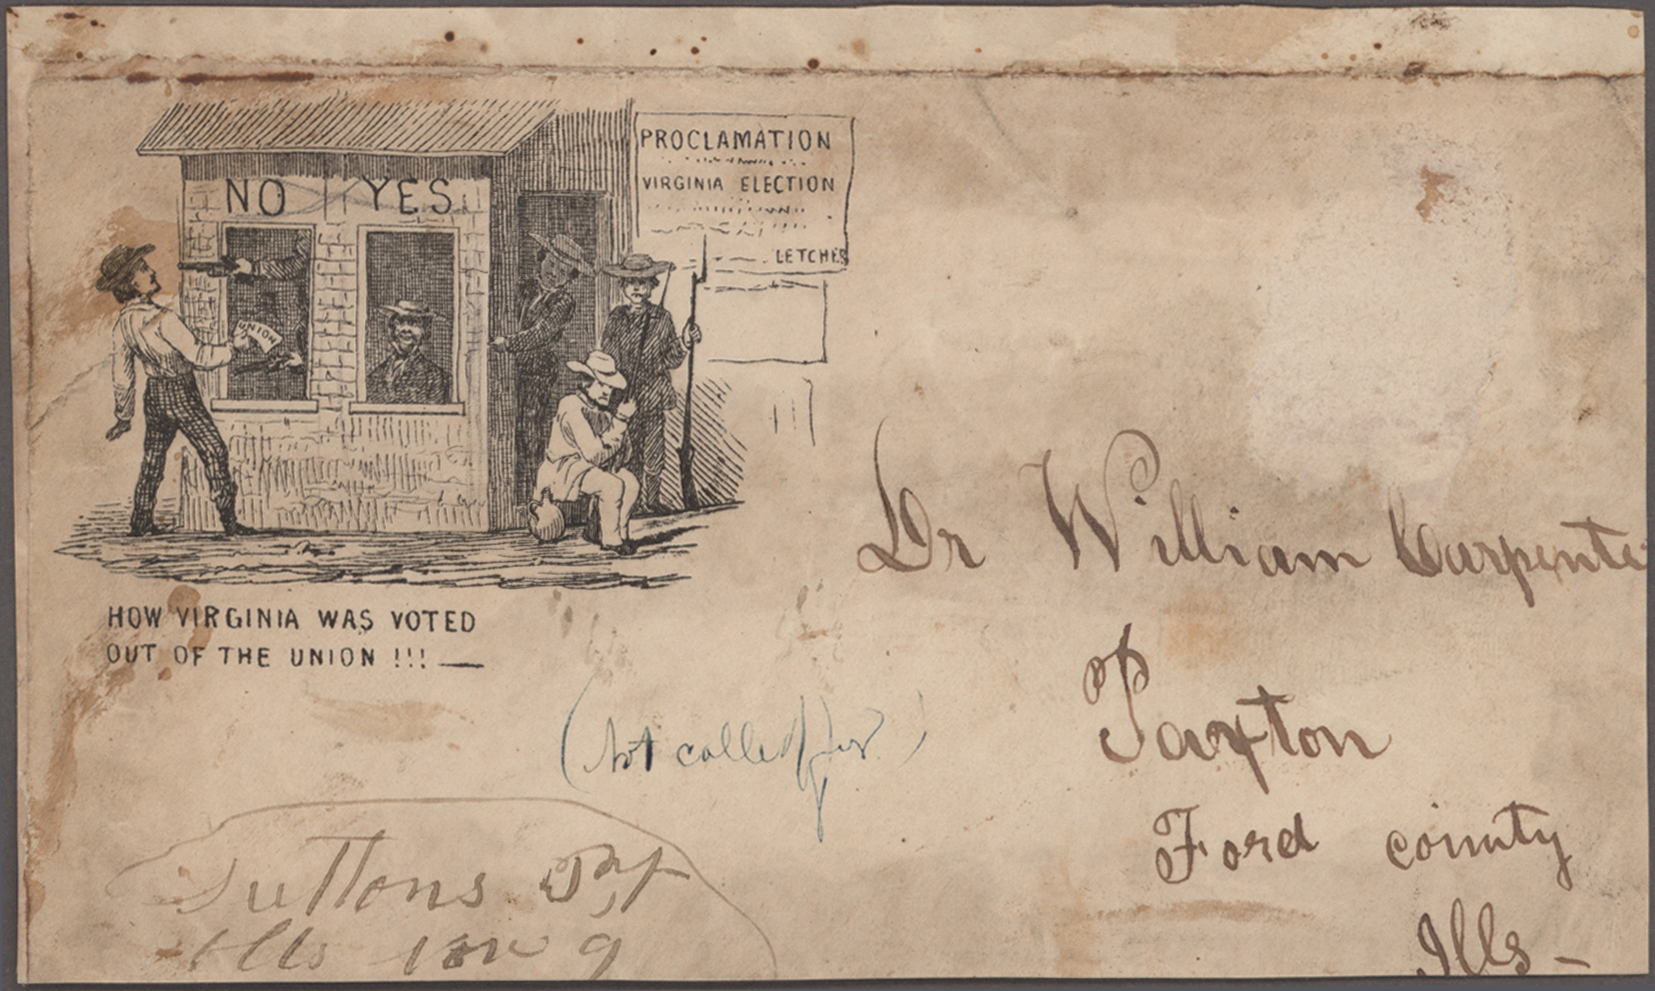 NO YES
PROCLAMATION
VIRGINIA ELECTION
LETCHER
UNION
HOW VIRGINIA WAS VOTED
OUT OF THE UNION !!! —
Dr William Carpenter
Paxton
Ford county
Ills —
(Not called for)
Suttons
Ills